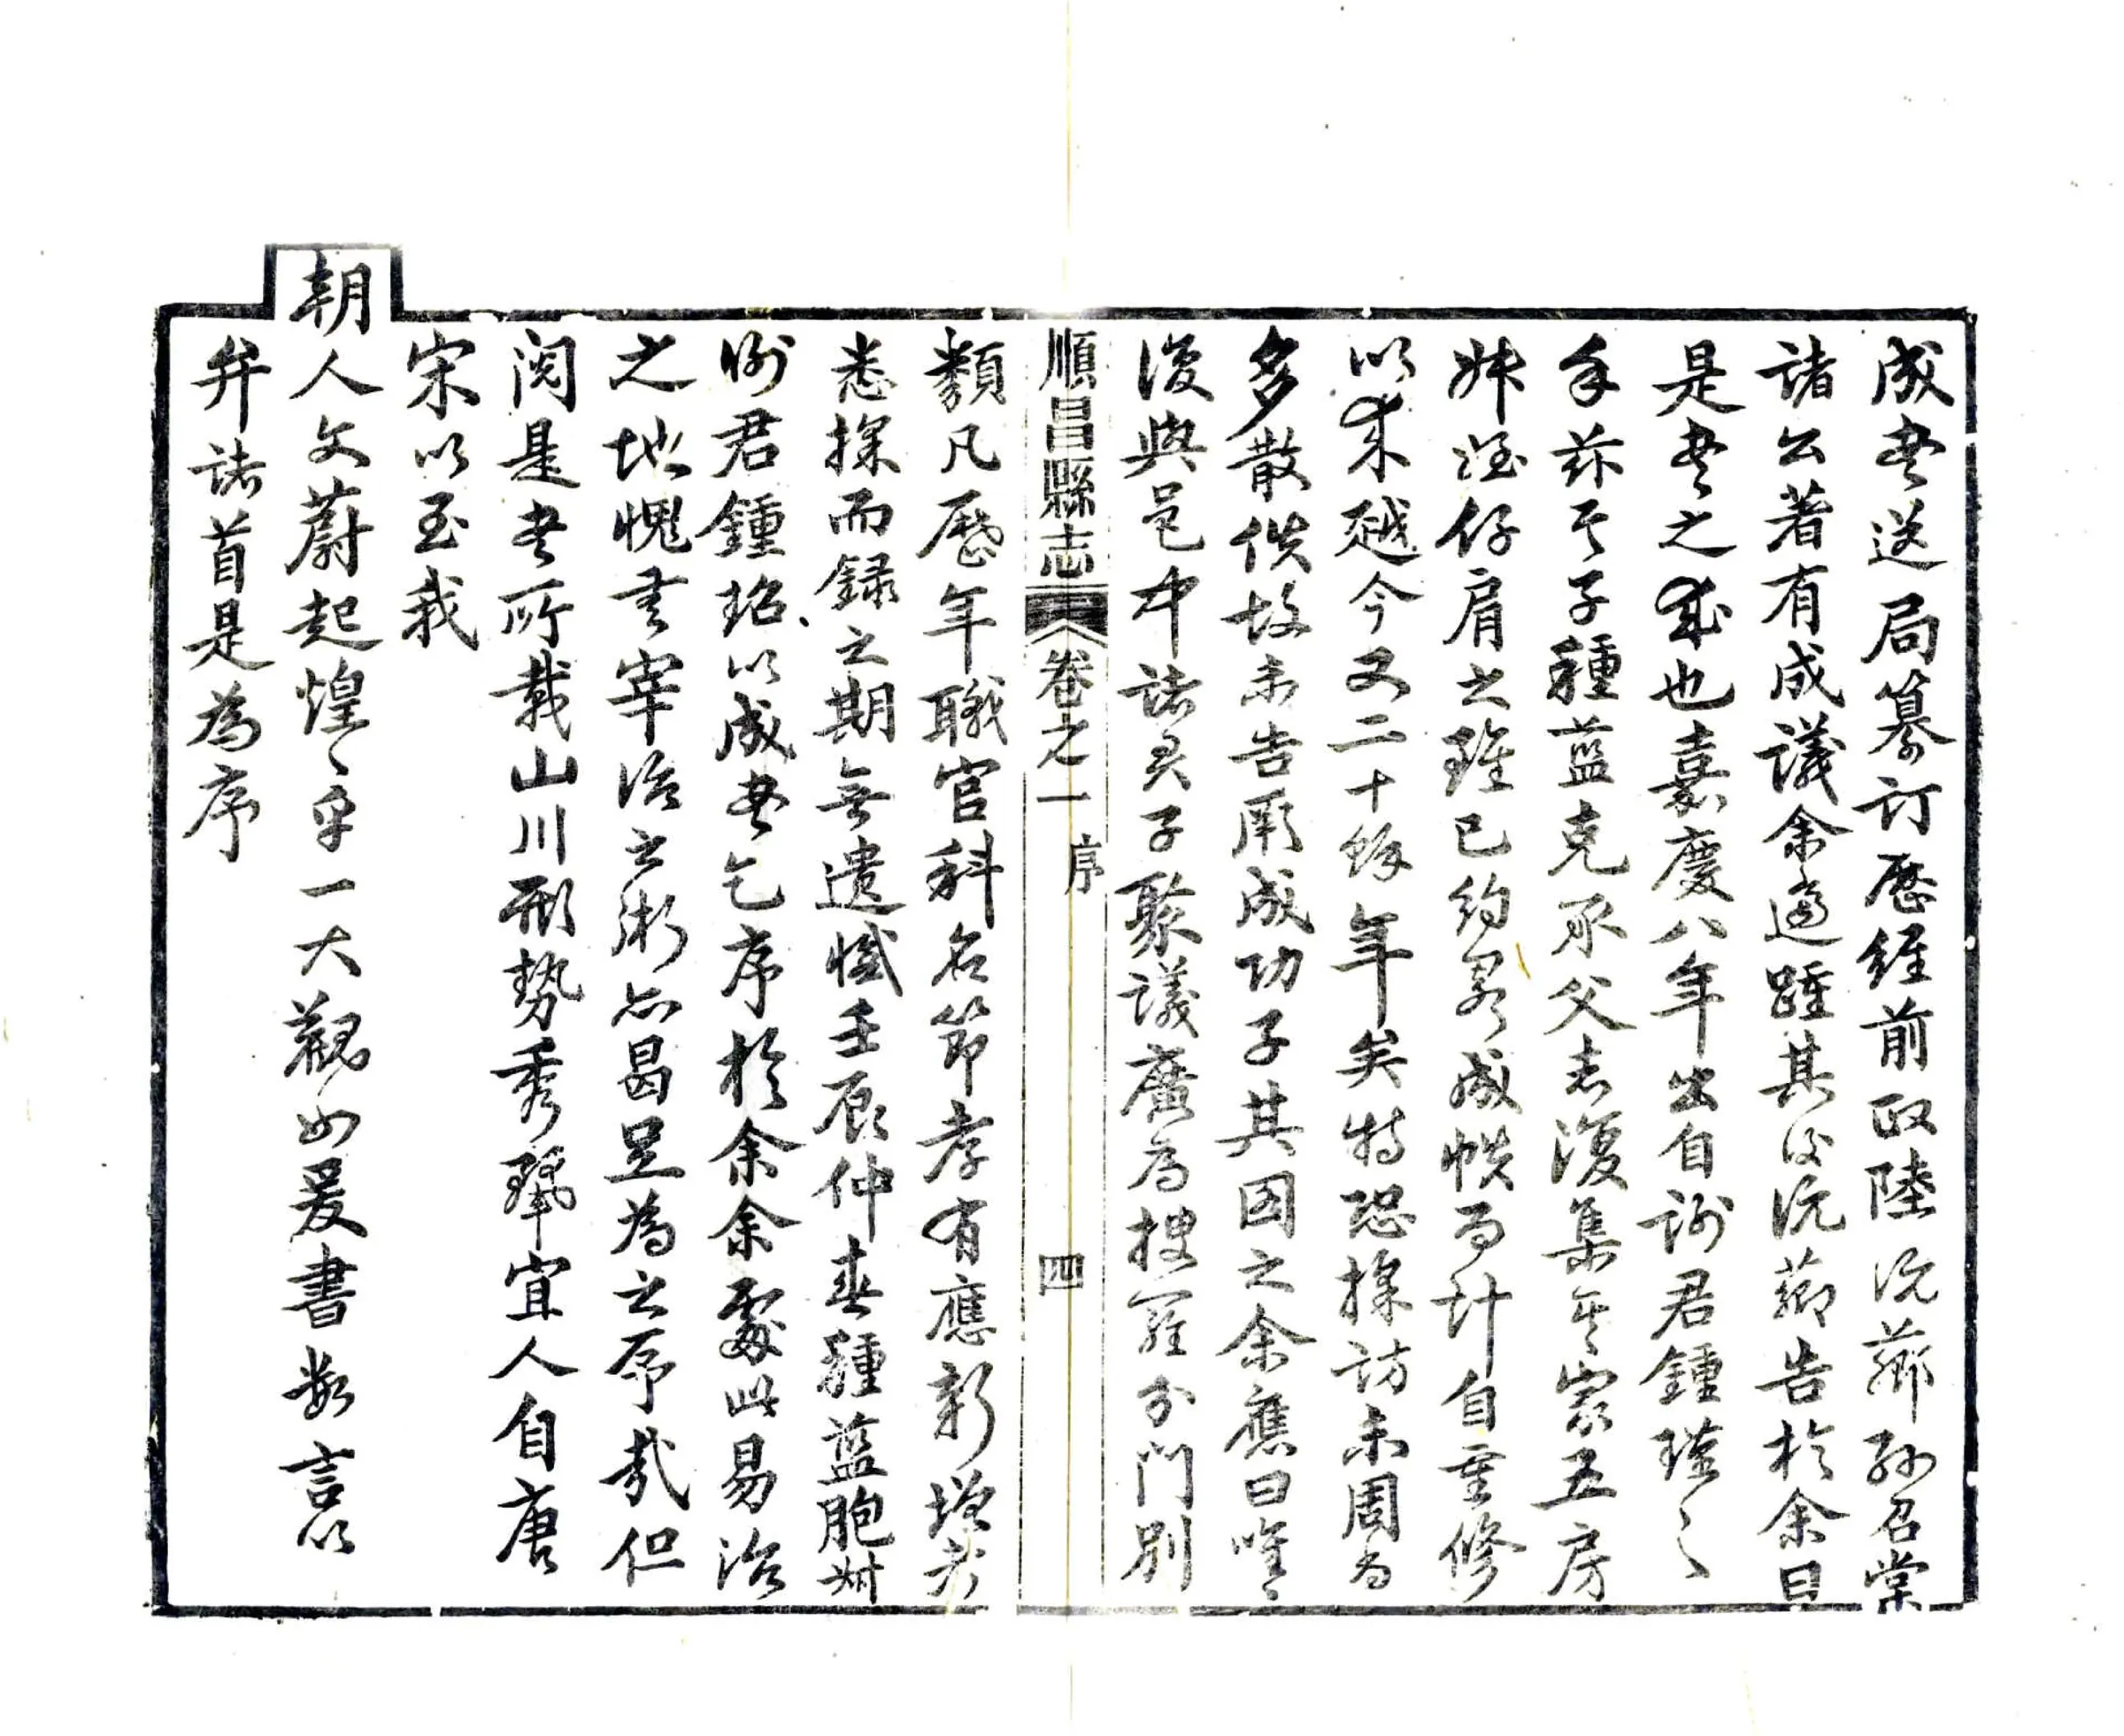 成書送局纂訂歷經前政陸沅薌孫召棠
諸公著有成議余適踵其後沅薌告於余曰
是書之來也嘉慶八年出自謝君鍾瑾之
手茲其子種藍克承父志復集其家五房
姊姪仔肩之雖已約畧成帙而計自重修
以來越今又二十餘年矣特恐採訪未周而
多散佚故未告厥成功子其圖之余應曰唯唯
復與邑中諸君子聚議廣為搜羅分門別
順昌縣志
卷之一
序
四
類凡歷年職官科名節孝有應新增者
悉採而錄之期無遺憾壬辰仲春種藍胞
謝君鍾珆以成書乞序於余余處此易治
之地愧書宰治之術亦曷足為之序哉但
閱是書所載山川形勢秀麗宜人自唐
宋以至我
朝人文蔚起煌煌乎一大觀也爰書數言以
弁諸首是為序